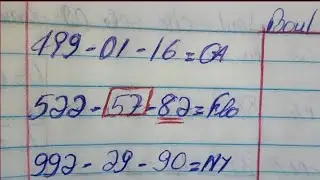 Boul
199-01-16=GA
522-57-82=Flo
992-29-90=NY